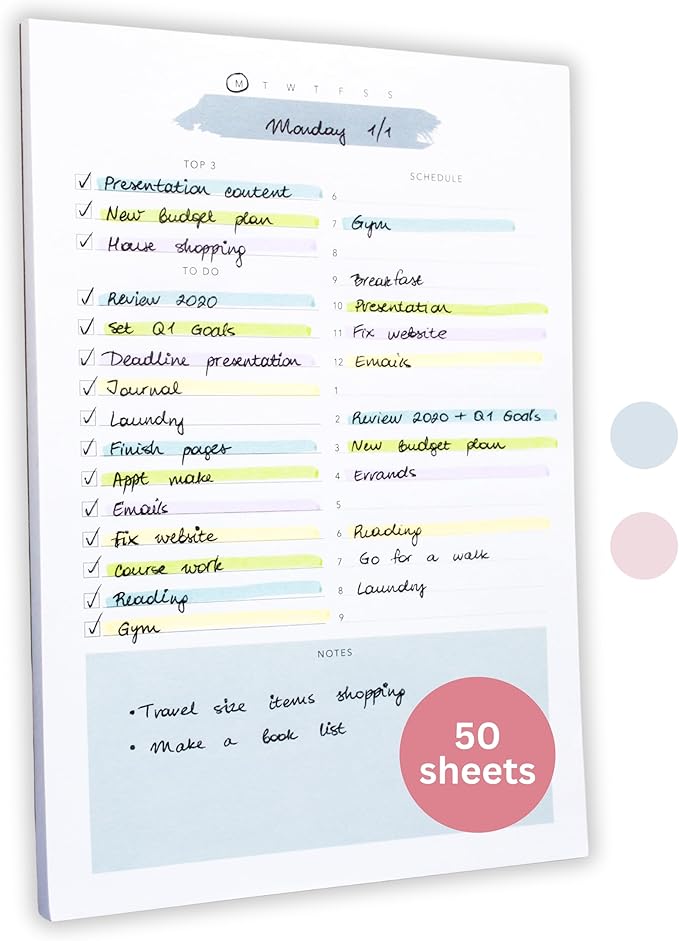 M T W T F S S
Monday 1/1
TOP 3
✓ Presentation content
✓ New Budget plan
✓ House shopping
TO DO
✓ Review 2020
✓ Set Q1 Goals
✓ Deadline presentation
✓ Journal
✓ Laundry
✓ Finish pages
✓ Appt make
✓ Emails
✓ Fix website
✓ Course work
✓ Reading
✓ Gym
SCHEDULE
6
7 Gym
8
9 Breakfast
10 Presentation
11 Fix website
12 Emails
1
2 Review 2020 + Q1 Goals
3 New Budget plan
4 Errands
5
6 Reading
7 Go for a walk
8 Laundry
9
NOTES
• Travel size items shopping
• Make a book list
50
sheets